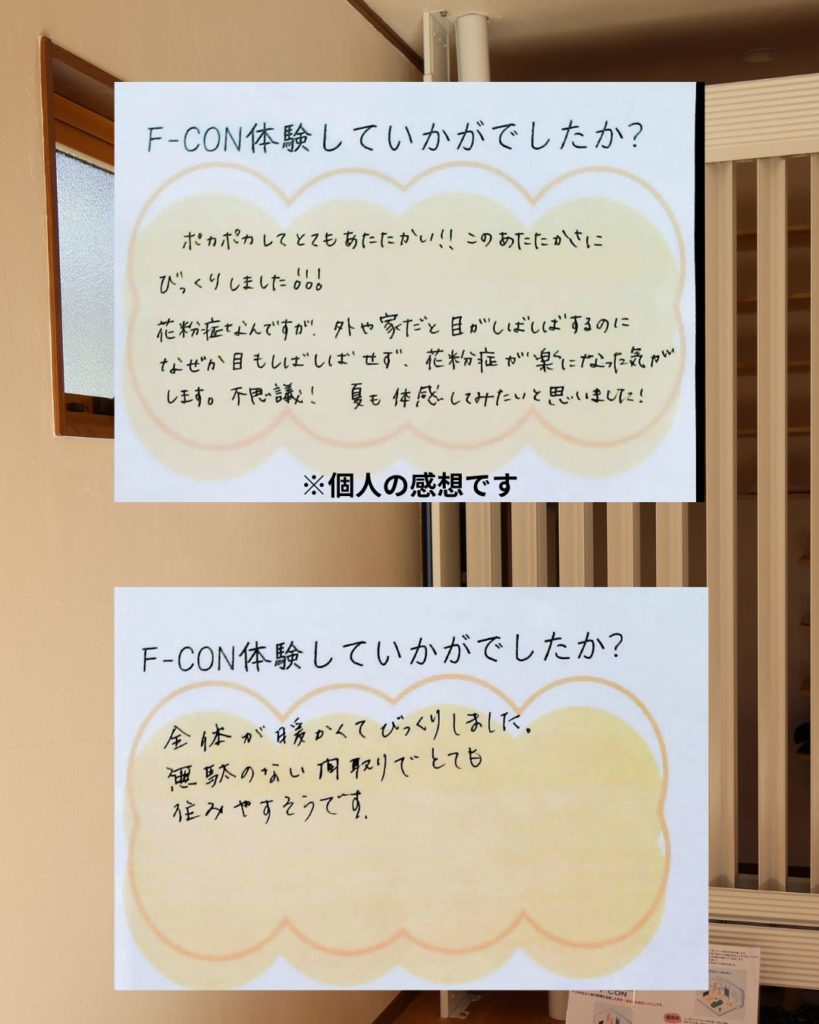 F-CON体験していかがでしたか?
ポカポカしてとてもあたたかい!! このあたたかさに
びっくりしました!!!
花粉症なんですが、外や家だと目がしばしばするのに
なぜか目もしばしばせず、花粉症が楽になった気が
します。不思議! 夏も体感してみたいと思いました!
※個人の感想です
F-CON体験していかがでしたか?
全体が暖かくてびっくりしました。
無駄のない間取りでとても
住みやすそうです。
F-CON